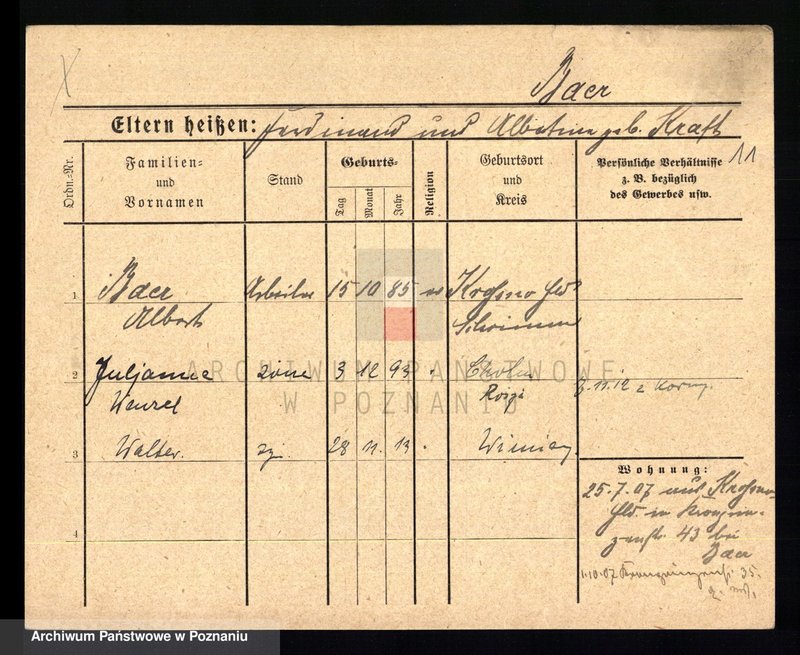 Baer
Eltern heißen: Ferdinand und Albertine geb. Kraft
11
Ordn.-Nr.
Familien-
und
Vornamen
Stand
Geburts-
Tag
Monat
Jahr
Religion
Geburtsort
und
Kreis
Persönliche Verhältnisse
z. B. bezüglich
des Gewerbes usw.
1 Baer Arbeiter 15 10 85 Krosno Hld
Albert Schrimm
2 Juljanna żona 3 12 93
Wenzel
3 Walter 28 11. 13
4
Wohnung:
25.7.07 aus Krosno-
Hld. in
43 bei
Baer
1.10.07 35.
ARCHIWUM PAŃSTWOWE
W POZNANIU
Archiwum Państwowe w Poznaniu